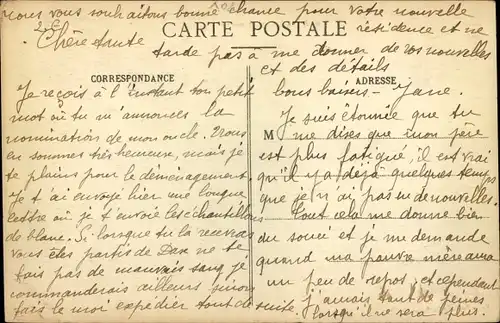 Nous vous souhaitons bonne chance pour votre nouvelle
résidence et ne
CARTE POSTALE
tarde pas à me donner de vos nouvelles
et des détails
bons baisers - Jane.
CORRESPONDANCE
ADRESSE
M
Chère tante
Je reçois à l'instant ton petit
mot où tu m'annonces la
nomination de mon oncle. Nous
en sommes très heureuse, mais je
te plains pour le déménagement.
Je t'ai envoyé hier une longue
lettre où je t'envoie les échantillons
de blanc. Si lorsque tu la recevras
vous êtes partis de Dax ne te
fais pas de mauvais sang je
commanderais ailleurs sinon
fais le moi expédier tout de suite.
Je suis étonnée que tu
me dises que mon père
est plus fatigué, il est vrai
qu'il y a déjà quelques temps
que je n'ai pas eu de nouvelles.
Tout cela me donne bien
du souci et je me demande
quand ma pauvre mère aura
un peu de repos, et cependant
j'aurais tant de peines
lorsqu'il ne sera plus.